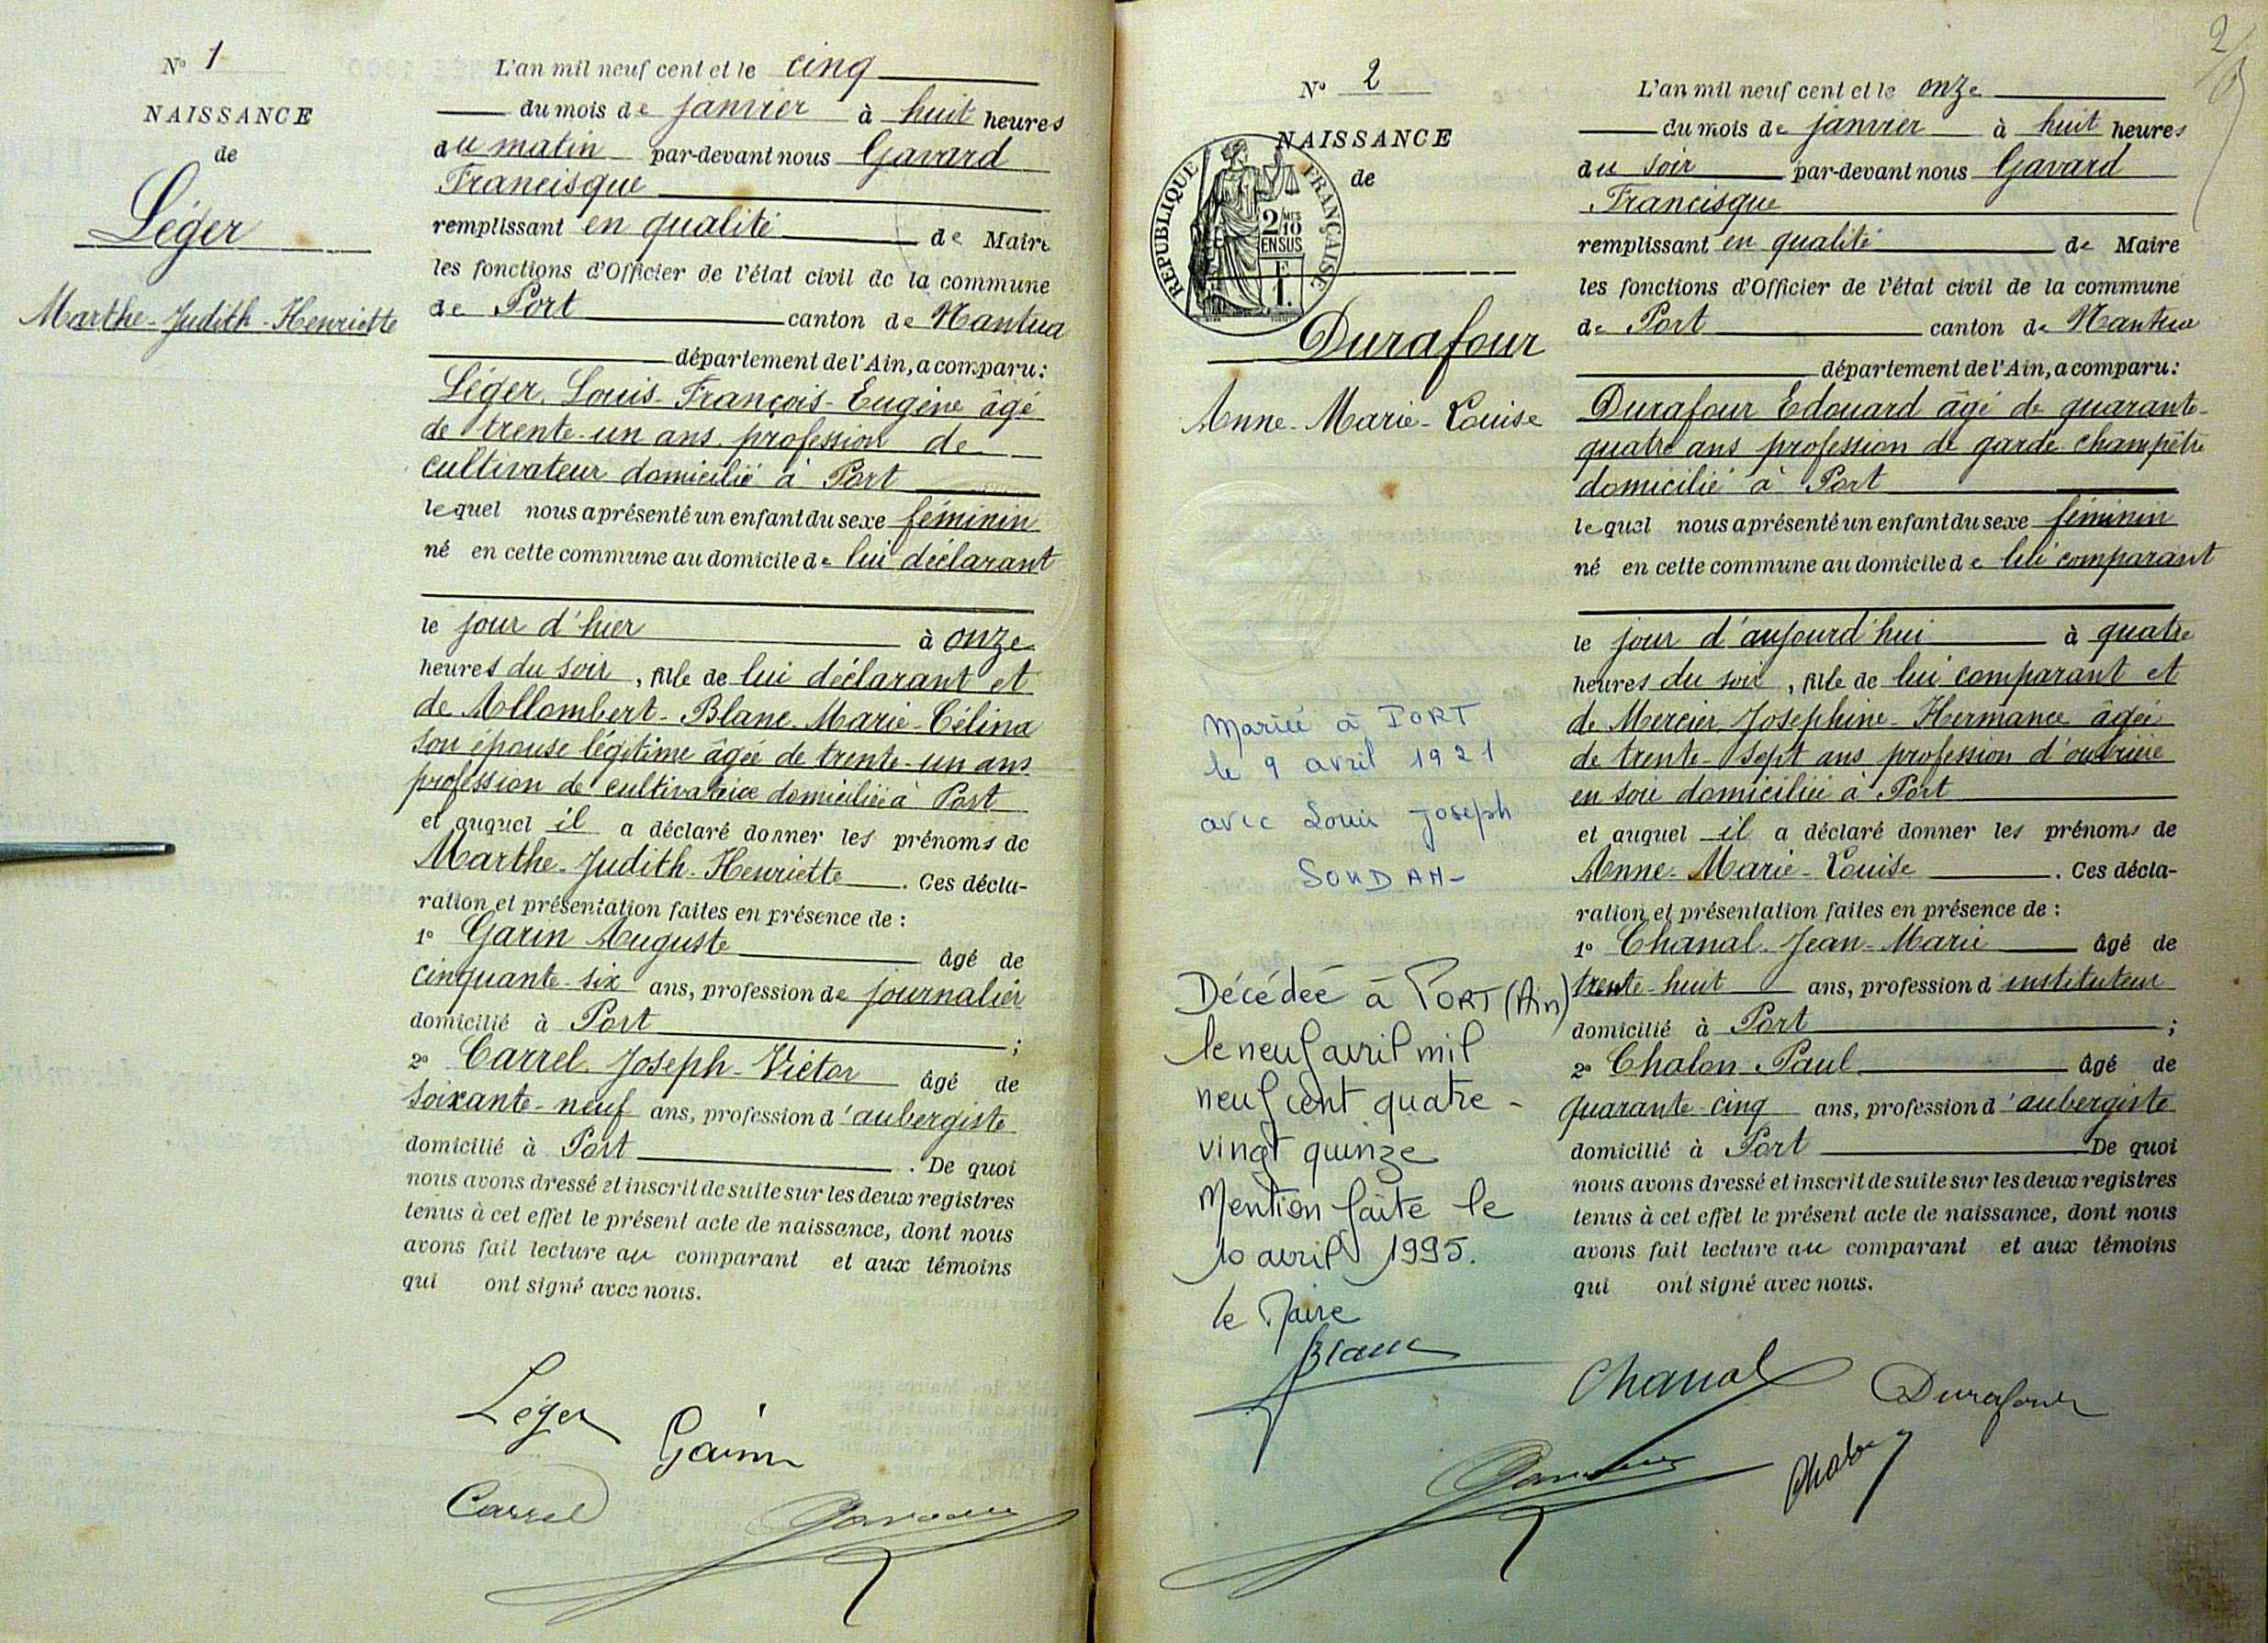 N° 1
NAISSANCE
de
Léger
Marthe-Judith-Henriette
L'an mil neuf cent et le cinq
du mois de janvier à huit heures
du matin par-devant nous Gavard
Francisque
remplissant en qualité de Maire
les fonctions d'Officier de l'état civil de la commune
de Port canton de Nantua
département de l'Ain, a comparu:
Léger, Louis-François-Eugène âgé
de trente-un ans profession de
cultivateur domicilié à Port
lequel nous a présenté un enfant du sexe féminin
né en cette commune au domicile de lui déclarant
le jour d'hier à onze
heures du soir, fille de lui déclarant et
de Allombert-Blanc Marie-Célina
son épouse légitime âgée de trente-un ans
profession de cultivatrice domiciliée à Port
et auquel il a déclaré donner les prénoms de
Marthe-Judith-Henriette. Ces décla-
ration et présentation faites en présence de :
1° Garin Auguste âgé de
cinquante-six ans, profession de journalier
domicilié à Port ;
2° Carrel Joseph-Victor âgé de
soixante-neuf ans, profession d'aubergiste
domicilié à Port. De quoi
nous avons dressé et inscrit de suite sur les deux registres
tenus à cet effet le présent acte de naissance, dont nous
avons fait lecture au comparant et aux témoins
qui ont signé avec nous.
Léger
Garin
Carrel
Gavard
2
N° 2
NAISSANCE
de
RÉPUBLIQUE FRANÇAISE
2/10 MES
EN SUS
F
1.
Durafour
Anne-Marie-Louise
Mariée à PORT
le 9 avril 1921
avec Louis Joseph
Décédée à PORT (Ain)
le neuf avril mil
neuf cent quatre-
vingt quinze
Mention faite le
10 avril 1995.
le Maire
Blanc
L'an mil neuf cent et le onze
du mois de janvier à huit heures
du soir par-devant nous Gavard
Francisque
remplissant en qualité de Maire
les fonctions d'Officier de l'état civil de la commune
de Port canton de Nantua
département de l'Ain, a comparu:
Durafour Edouard âgé de quarante-
quatre ans profession de garde-champêtre
domicilié à Port
lequel nous a présenté un enfant du sexe féminin
né en cette commune au domicile de lui comparant
le jour d'aujourd'hui à quatre
heures du soir, fille de lui comparant et
de Mercier Joséphine-Hermance âgée
de trente-sept ans profession d'ouvrière
en soie domiciliée à Port
et auquel il a déclaré donner les prénoms de
Anne-Marie-Louise. Ces décla-
ration et présentation faites en présence de :
1° Chanal Jean-Marie âgé de
trente-huit ans, profession d'instituteur
domicilié à Port ;
2° Chalon Paul âgé de
quarante-cinq ans, profession d'aubergiste
domicilié à Port De quoi
nous avons dressé et inscrit de suite sur les deux registres
tenus à cet effet le présent acte de naissance, dont nous
avons fait lecture au comparant et aux témoins
qui ont signé avec nous.
Chanal
Durafour
Gavard
Chalon